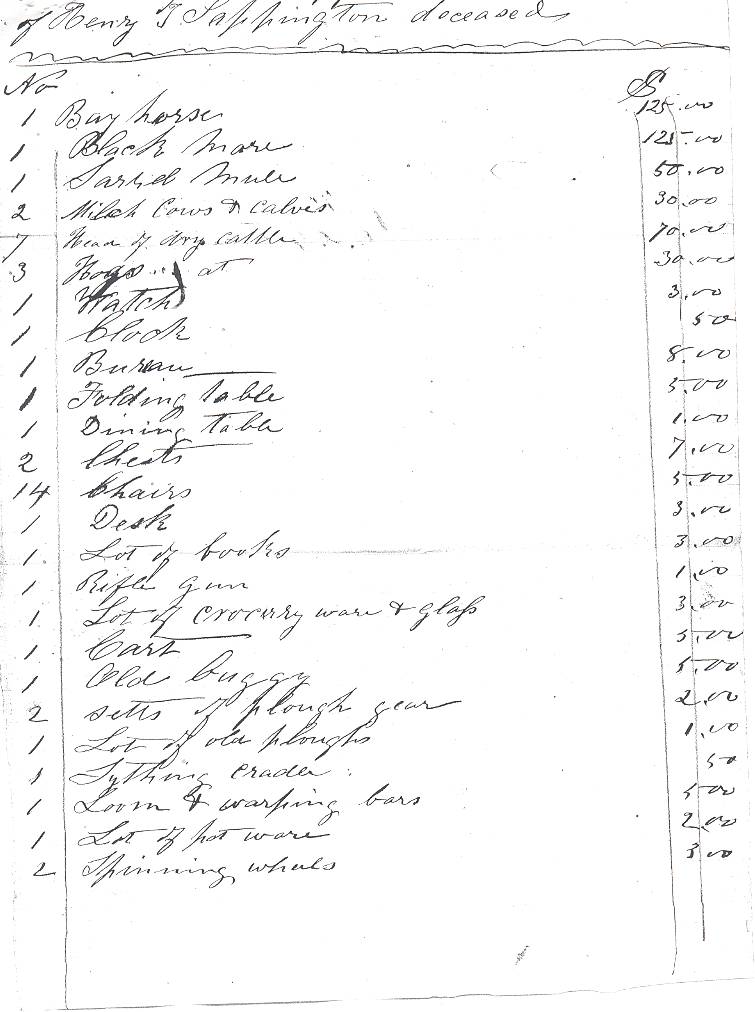 of Henry T Sappington deceased
No $
1 Bay horse 125.00
1 Black mare 125.00
1 Sarrel mule 50.00
2 Milch Cows & Calves 30.00
7 Head of dry cattle 70.00
3 Hogs at 30.00
1 Watch 3.00
1 Clock 50
1 Bureau 8.00
1 Folding table 5.00
1 Dining table 1.00
2 Chests 7.00
14 Chairs 5.00
1 Desk 3.00
1 Lot of books 3.00
1 Rifle gun 1.00
1 Lot of crocerry ware & glass 3.00
1 Cart 5.00
1 Old buggy 5.00
2 setts of plough gear 2.00
1 Lot of old ploughs 1.00
1 Sything cradle 50
1 Loom & warping bars 5.00
1 Lot of pot ware 2.00
2 Spinning wheels 3.00